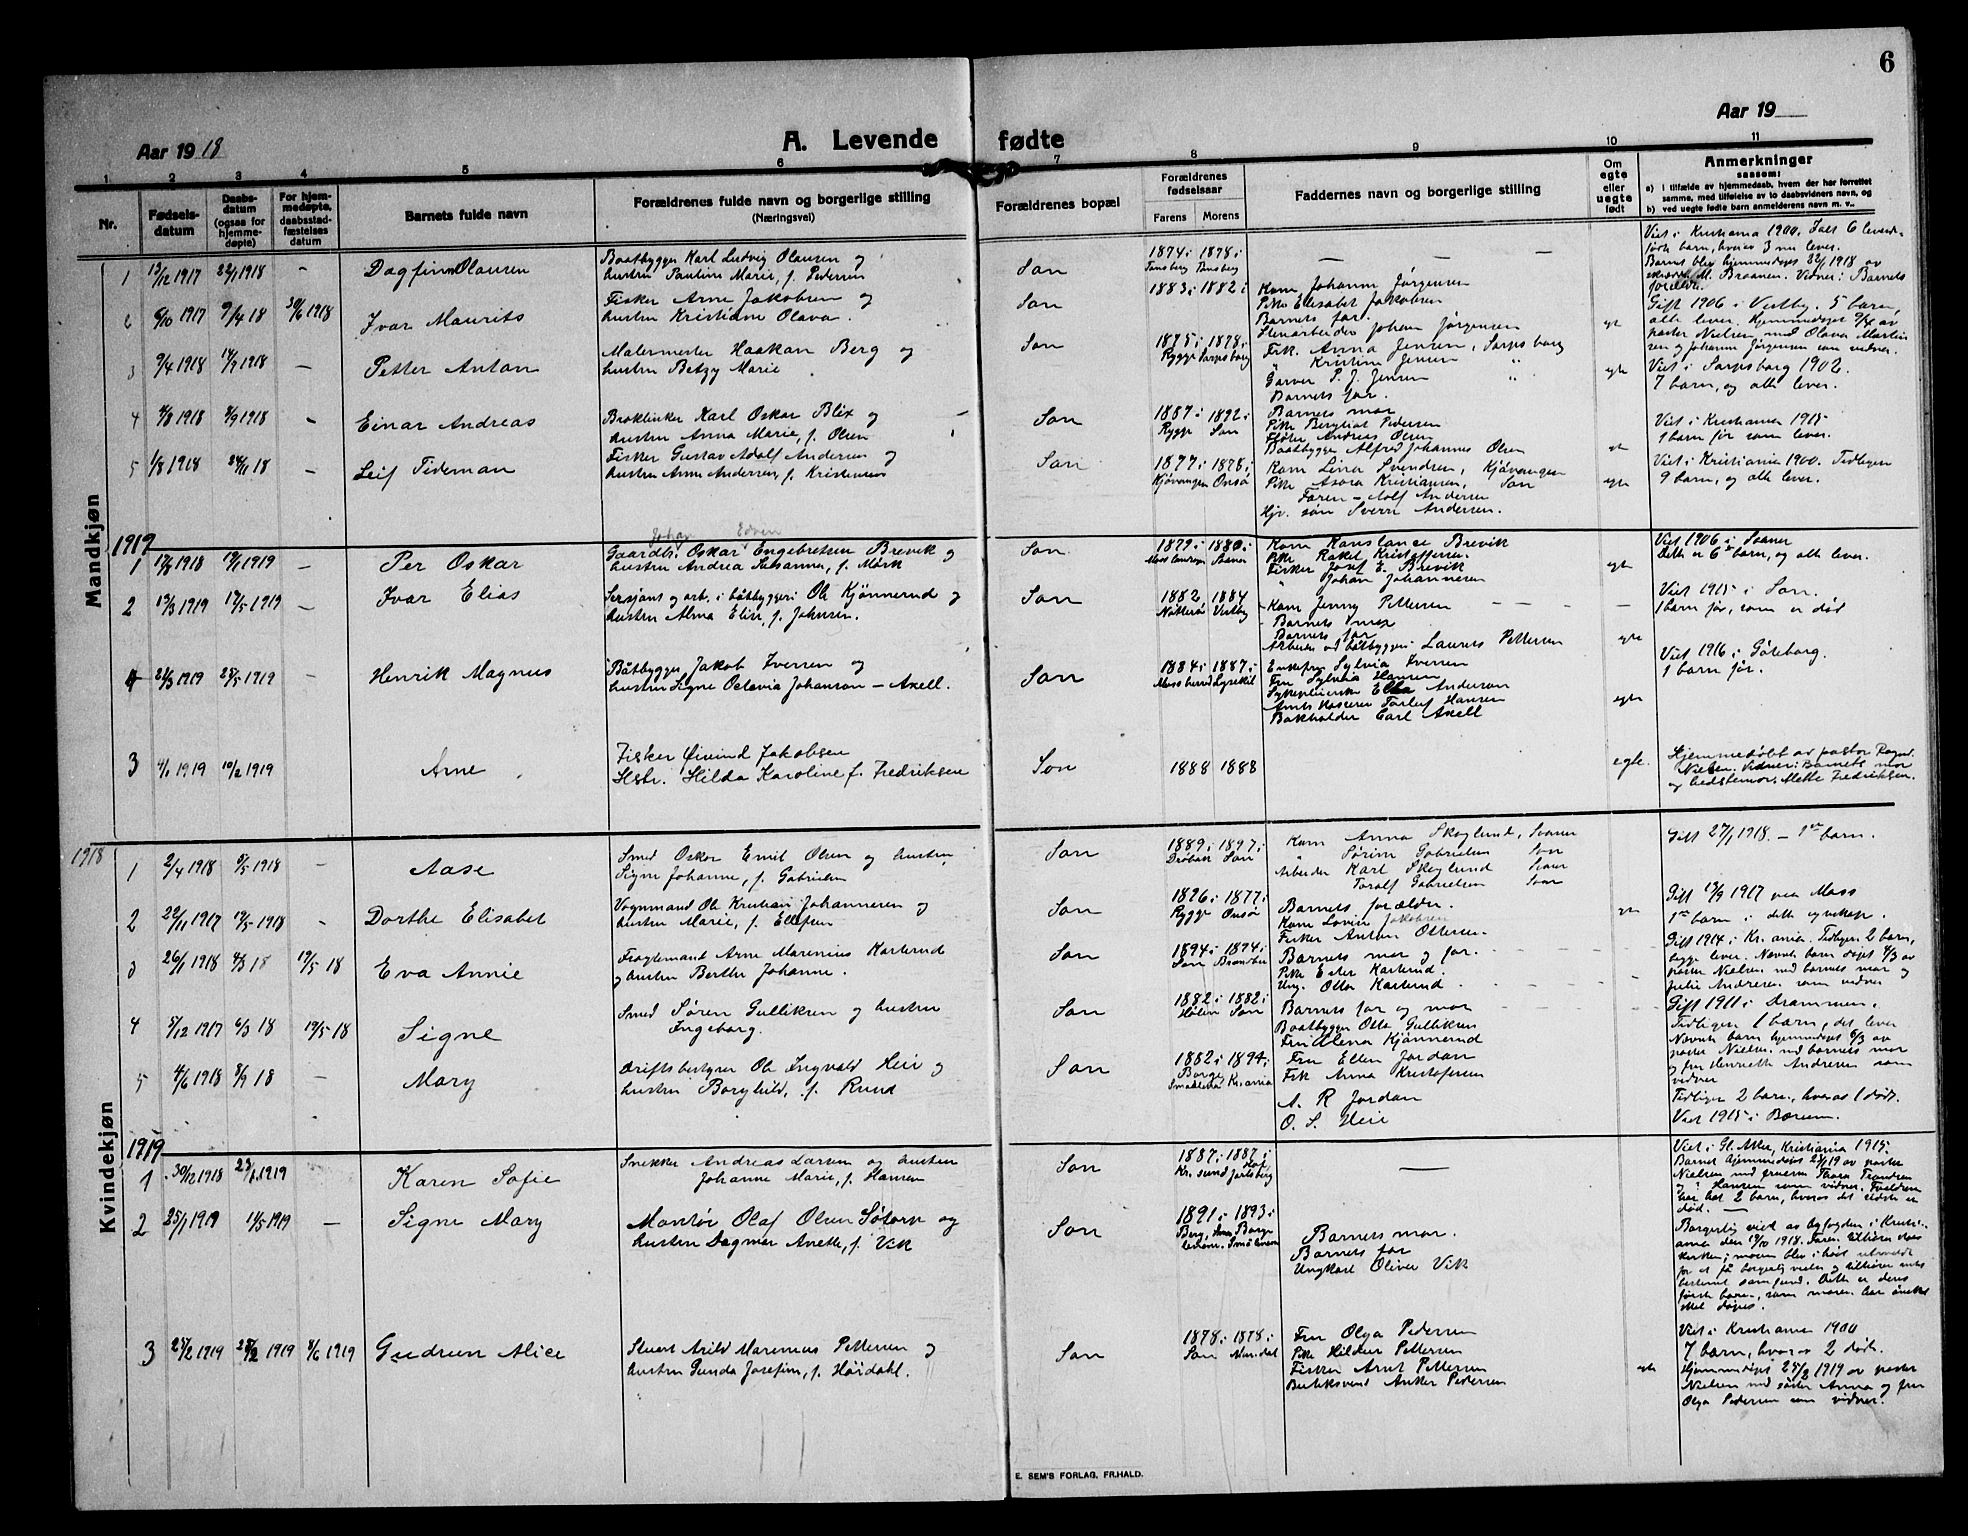 6
Aar 19 18
A. Levende fødte
Aar 19
1 2 3 4 5 6 7 8 9 10 11
Nr.
Fødsels-
datum
Daabs-
datum
(ogsaa for
hjemme-
døpte)
For hjem-
medøpte,
daabsstad-
fæstelses
datum
Barnets fulde navn
Forældrenes fulde navn og borgerlige stilling
(Næringsvei)
Forældrenes bopæl
Forældrenes
fødselsaar
Farens Morens
Faddernes navn og borgerlige stilling
Om
egte
eller
uegte
født
Anmerkninger
saasom:
a) i tilfælde av hjemmedaab, hvem der har forrettet
samme, med tilføielse av to daabsvidners navn, og
b) ved uegte fødte barn anmelderens navn m. v.
Mandkjøn
1 13/12 1917 22/1 1918 – Dagfinn Olausen
Baatbygger Karl Ludvig Olausen og
hustru Pauline Marie, f. Pedersen
Son
1874 i 1878 i
Tønsberg Tønsberg
– – –
Viet i Kristiania 1900. Født 6 levende
fødte barn, hvorav 3 nu lever.
Barnet blev hjemmedøpt 22/1 1918 av
M. Braanen. Vidner: Barnets
forældre.
2 6/10 1917 9/4 18 30/6 1918 Ivar Maurits
Fisker Arne Jakobsen og
hustru Kristiane Olava.
Son
1883 i 1882 i
Kone Johanne Jørgensen
Pike Elisabet Jakobsen
Barnets far.
Stenarbeider Johan Jørgensen
egt
Gift 1906 i Vestby. 5 barn,
alle lever. Hjemmedøpt 9/4 av
pastor Nielsen med Olava Martin
sen og Johanne Jørgensen som vidner.
3 9/4 1918 14/9 1918 – Petter Anton
Malermester Haakan Berg og
hustru Betzy Marie
Son
1875 i 1878 i
Rygge Sarpsborg
Frk. Anna Jensen, Sarpsborg
" Kristine Jensen "
Garver P. J. Jensen "
Barnets far.
egte
Viet i Sarpsborg 1902.
7 barn, og alle lever.
4 4/8 1918 8/9 1918 – Einar Andreas
Karl Oskar Blix og
hustru Anna Marie, f. Olsen
Son
1887 i 1892 i
Rygge Son
Barnets mor
Pike Bergliot Pedersen
Andreas Olsen
Baatbygger Alfred Johannes Olsen
egt
Viet i Kristiania 1915
1 barn før som lever.
5 1/8 1918 24/11 18 – Leif Tideman
Fisker Gustav Adolf Andersen og
hustru Arne Andersen, f. Kristensen
Son
1877 i 1878 i
Kjøvangen Onsø
Kone Lina Svendsen, Kjøvangen
Pike Asora Kristiansen, Son
Faren – Adolf Andersen
Hjv. søn Sverre Andersen.
egte
Viet i Kristiania 1900. Tidligere
9 barn, og alle lever.
1919
1 17/8 1918 19/1 1919 – Per Oskar
Johan Edvin
Gaardb. Oskar Engebretsen Brevik og
hustru Andrea Susanne, f. Mørk
Son.
1879 i 1880 i
Soaner
Kone Konstance Brevik
Pike Rakel Kristoffersen
Fisker Josef E. Brevik
" Johan Johannesen
egte
Viet 1906 i Soaner
Dette er 6te barn, og alle lever.
2 13/3 1919 19/5 1919 – Ivar Elias
Sersjant og arb. i båtbyggeri Ole Kjønnerud og
hustru Alma Elise, f. Johnsen.
Son
1882 1884
Nøtterø Vestby
Kone Jenny Pettersen
Barnets mor
Barnets far
Arbeider ved båtbyggeri Laurits Pettersen
egte
Viet 1915 i Son.
1 barn før, som er død
4 24/3 1919 25/5 1919 – Henrik Magnus
Båtbygger Jakob Iversen og
hustru Signe Octavia Johanson – Axell.
Son
1884 i 1887 i
Moss Lysekil
Enkefru Sylvia Iversen
Fru Sylvia Hansen
Sykepleierske Ella Anderson
Amts Kasserer Torleif Hansen
Bokholder Carl Axell
egte
Viet 1916 i Gøteborg.
1 barn før.
3 4/1 1919 10/2 1919 Arne
Fisker Øivind Jakobsen
Hstr. Hilda Karoline f. Fredriksen
Son
1888 1888
egte.
Hjemmedøbt av pastor Ragnv.
Nielsen. Vidner: Barnets mor
og bedstemor Mette Fredriksen.
Kvindekjøn
1918
1 2/4 1918 5/5 1918 – Aase
Smed Oskar Emil Olsen og hustru
Signe Johanne, f. Gabrielsen
Son
1889 i 1897 i
Drøbak Son
Kone Anna Skoglund, Soaner
" Sørine Gabrielsen Son
Arbeider Karl Skoglund Soaner
Toralf Gabrielsen Son
Gift 27/1 1918. – 1ste barn.
2 22/11 1917 19/5 1918 – Dorthe Elisabet
Vognmand Ole Kristian Johannesen og
hustru Marie, f. Ellefsen
Son
1876 i 1877 i
Rygge Onsø
Barnets forældre.
Kone Lovise Jakobsen
Fisker Anton Ottersen.
egte
Gift 13/9 1917 ved Moss
1ste barn i dette egteskap.
3 26/1 1918 4/3 18 19/5 18 Eva Annie
Fragtemand Arne Marenius Karlsrud
og hustru Berthe Johanne.
Son
1894 i 1894 i
Son
Barnets mor og far.
Pike Ester Karlsrud.
Ung. Otto Karlsrud.
Gift 1914 i Kr.ania. Tidligere 2 barn,
begge lever. Nævnte barn døpt 4/3 av
pastor Nielsen med barnets mor og
Julie Andresen som vidner
4 5/12 1917 6/3 18 19/5 18 Signe
Smed Søren Gulliksen og hustru
Ingeborg.
Son
1882 i 1882 i
Hølen Son
Barnets far og mor
Baatbygger Otto Gulliksen
Fru Alma Kjønnerud
Gift 1911 i Drammen.
Tidligere 1 barn, det lever
Nævnte barn hjemmedøpt 6/3 av
pastor Nielsen med barnets mor
og fru Henriette Andresen som
vidner
5 4/6 1918 8/9 18 – Mary
Driftsbestyrer Ole Ingvald Heie og
hustru Borghild, f. Rund
Son
1882 i 1894 i
Borge Kr.ania
Smaalene
Fru Ellen Jordan
Frk Anna Kristofersen
A. R. Jordan
O. S. Heie
Tidligere 2 barn, hvorav 1 dødt.
Viet 1915 i Bærum.
1919
1 30/12 1918 23/1 1919 Karen Sofie
Snekker Andreas Larsen og hustru
Johanne Marie, f. Hansen
Son
1887 i 1887 i
Kr. sund Hof, Jarlsberg
—
Viet i Gl. Aker, Kristiania 1915.
Barnet hjemmedøpt 23/1 19 av pastor
Nielsen med fruerne Thora Trondsen
og Hansen som vidner. Forældrene
har hat 2 barn, hvorav det eldste er
død. —
2 25/1 1919 11/5 1919 – Signe Mary
Montør Olaf Olsen Søtorn og
hustru Dagmar Anette, f. Vik
Son
1891 i 1893 i
Berg, Smaalenene Borge Smålenene
Barnets mor.
Barnets far
Ungkarl Oliver Vik
Borgerlig viet av byfogden i Kristi-
ania den 19/10 1918. Faren tilhører stats
kirken; moren blev i høst utmeldt
for at få borgerlig vielse og tilhører intet
bestemt samfund. Dette er deres
første barn, som moren har ønsket
skal døpes.
3 25/2 1919 25/2 1919 8/6 1919 Gudrun Alice
Stuert Arild Marenius Pettersen og
hustru Gunda Josefine, f. Høidahl.
Son
1878 i 1878 i
Son
Fru Olga Pedersen
Pike Hildur Pettersen
Fisker Arnt Pettersen
Butiksvend Anker Pedersen
egte
Viet i Kristiania 1900
7 barn, hvorav 2 døde.
Hjemmedøpt 25/2 1919 av pastor
Nielsen med søster Anna og fru
Olga Pedersen som vidner.
E. SEM'S FORLAG, FR.HALD.